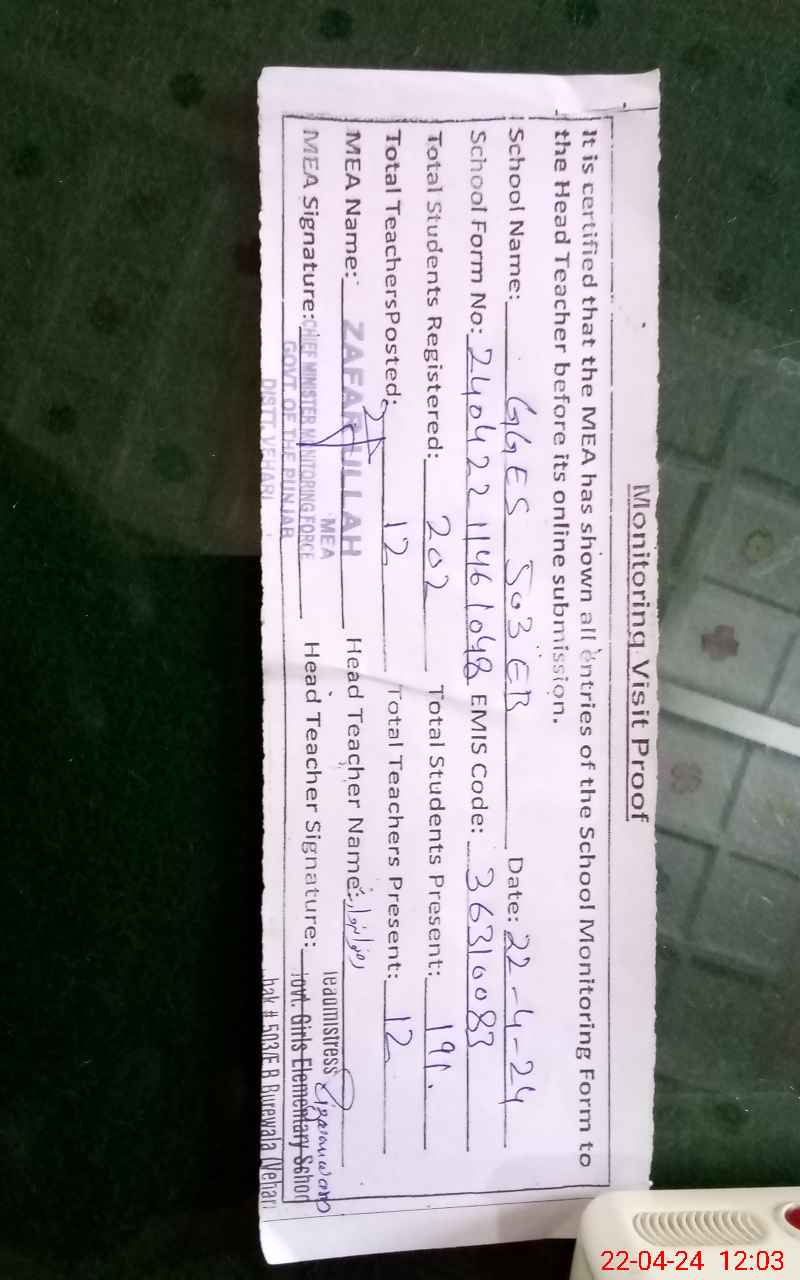 Monitoring Visit Proof
It is certified that the MEA has shown all entries of the School Monitoring Form to
the Head Teacher before its online submission.
School Name: GGES 503 EB Date: 22-4-24
School Form No: 240422 11461048 EMIS Code: 36310083
Total Students Registered: 202 Total Students Present: 191.
Total TeachersPosted: 12 Total Teachers Present: 12
MEA Name: ZAFAR ULLAH Head Teacher Name:
MEA
MEA Signature: CHIEF MINISTER MONITORING FORCE Head Teacher Signature:
GOVT. OF THE PUNJAB
DISTT. VEHARI
eadmistress
ovt. Girls Elementary Schoo
hak # 503/E.B Burewala (Vehari
22-04-24 12:03